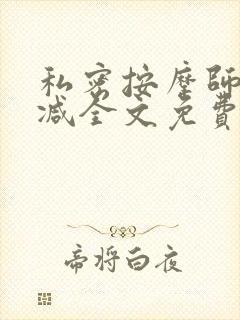 私密按摩師
减全文免費
帝将白夜